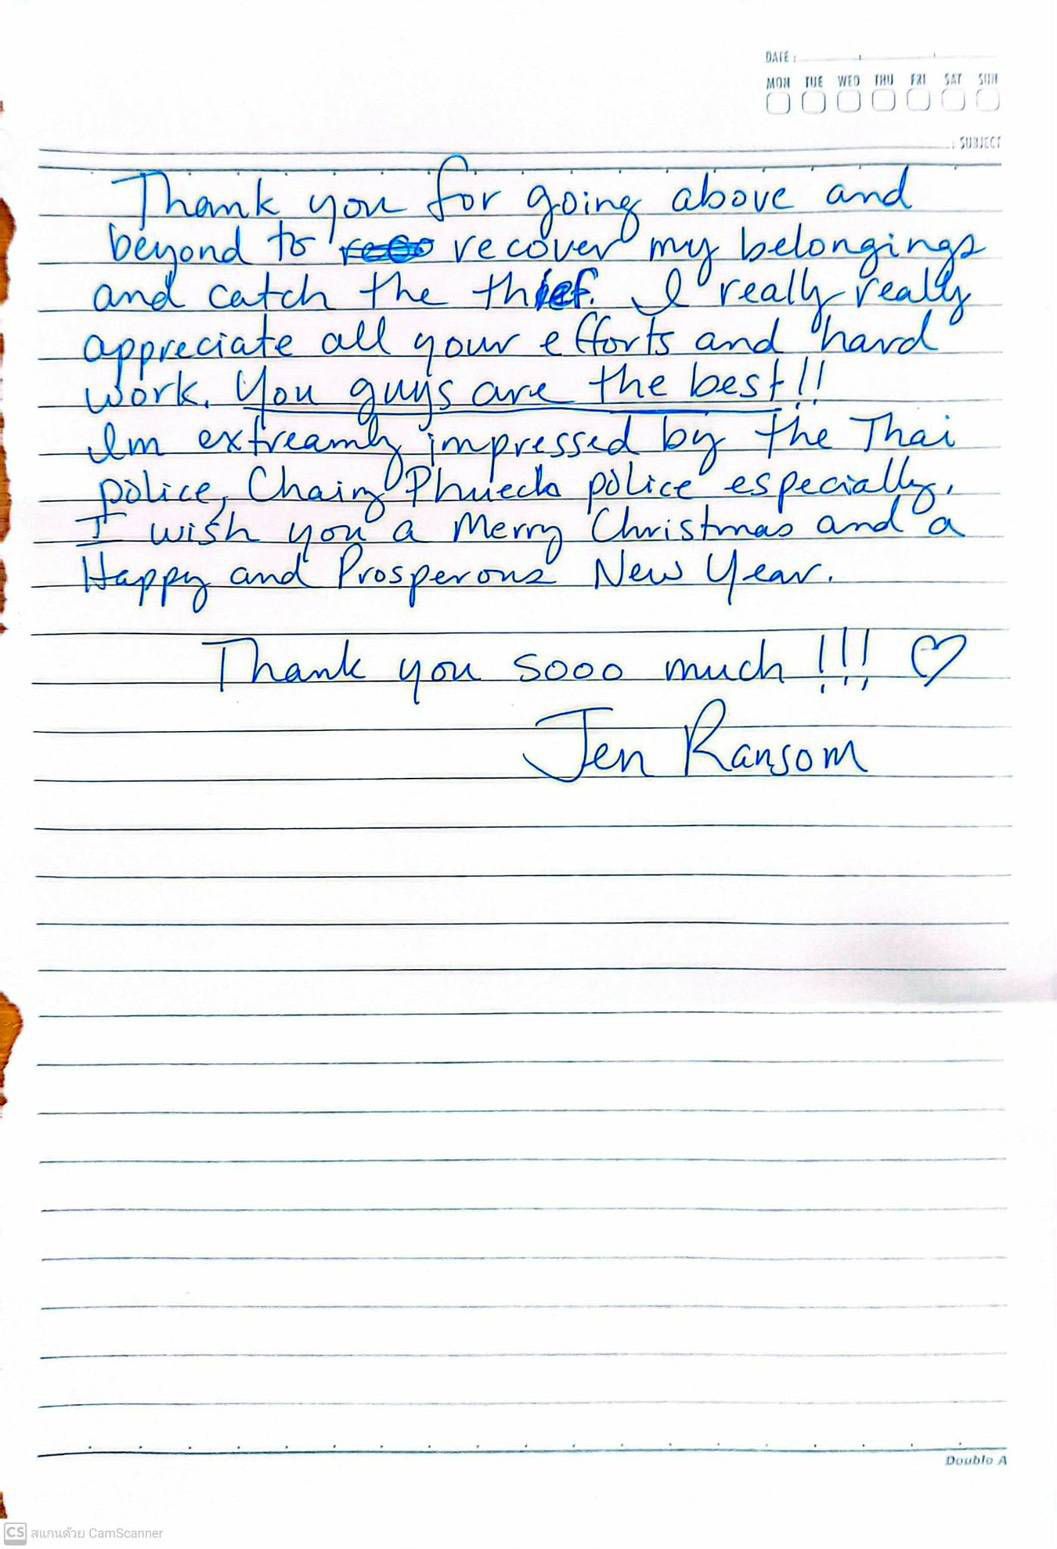 DATE :
MON TUE WED THU FRI SAT SUN
SUBJECT
Thank you for going above and
beyond to recover my belongings
and catch the thief. I really really
appreciate all your efforts and hard
work. You guys are the best!!
Im extreamly impressed by the Thai
police, Chaing Phueck police especially.
I wish you a Merry Christmas and a
Happy and Prosperous New Year.
Thank you sooo much!!! ♡
Jen Ransom
Double A
CS สแกนด้วย CamScanner